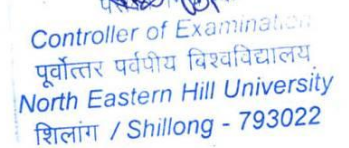 Controller of Examination
पूर्वोत्तर पर्वतीय विश्वविद्यालय
North Eastern Hill University
शिलांग / Shillong - 793022